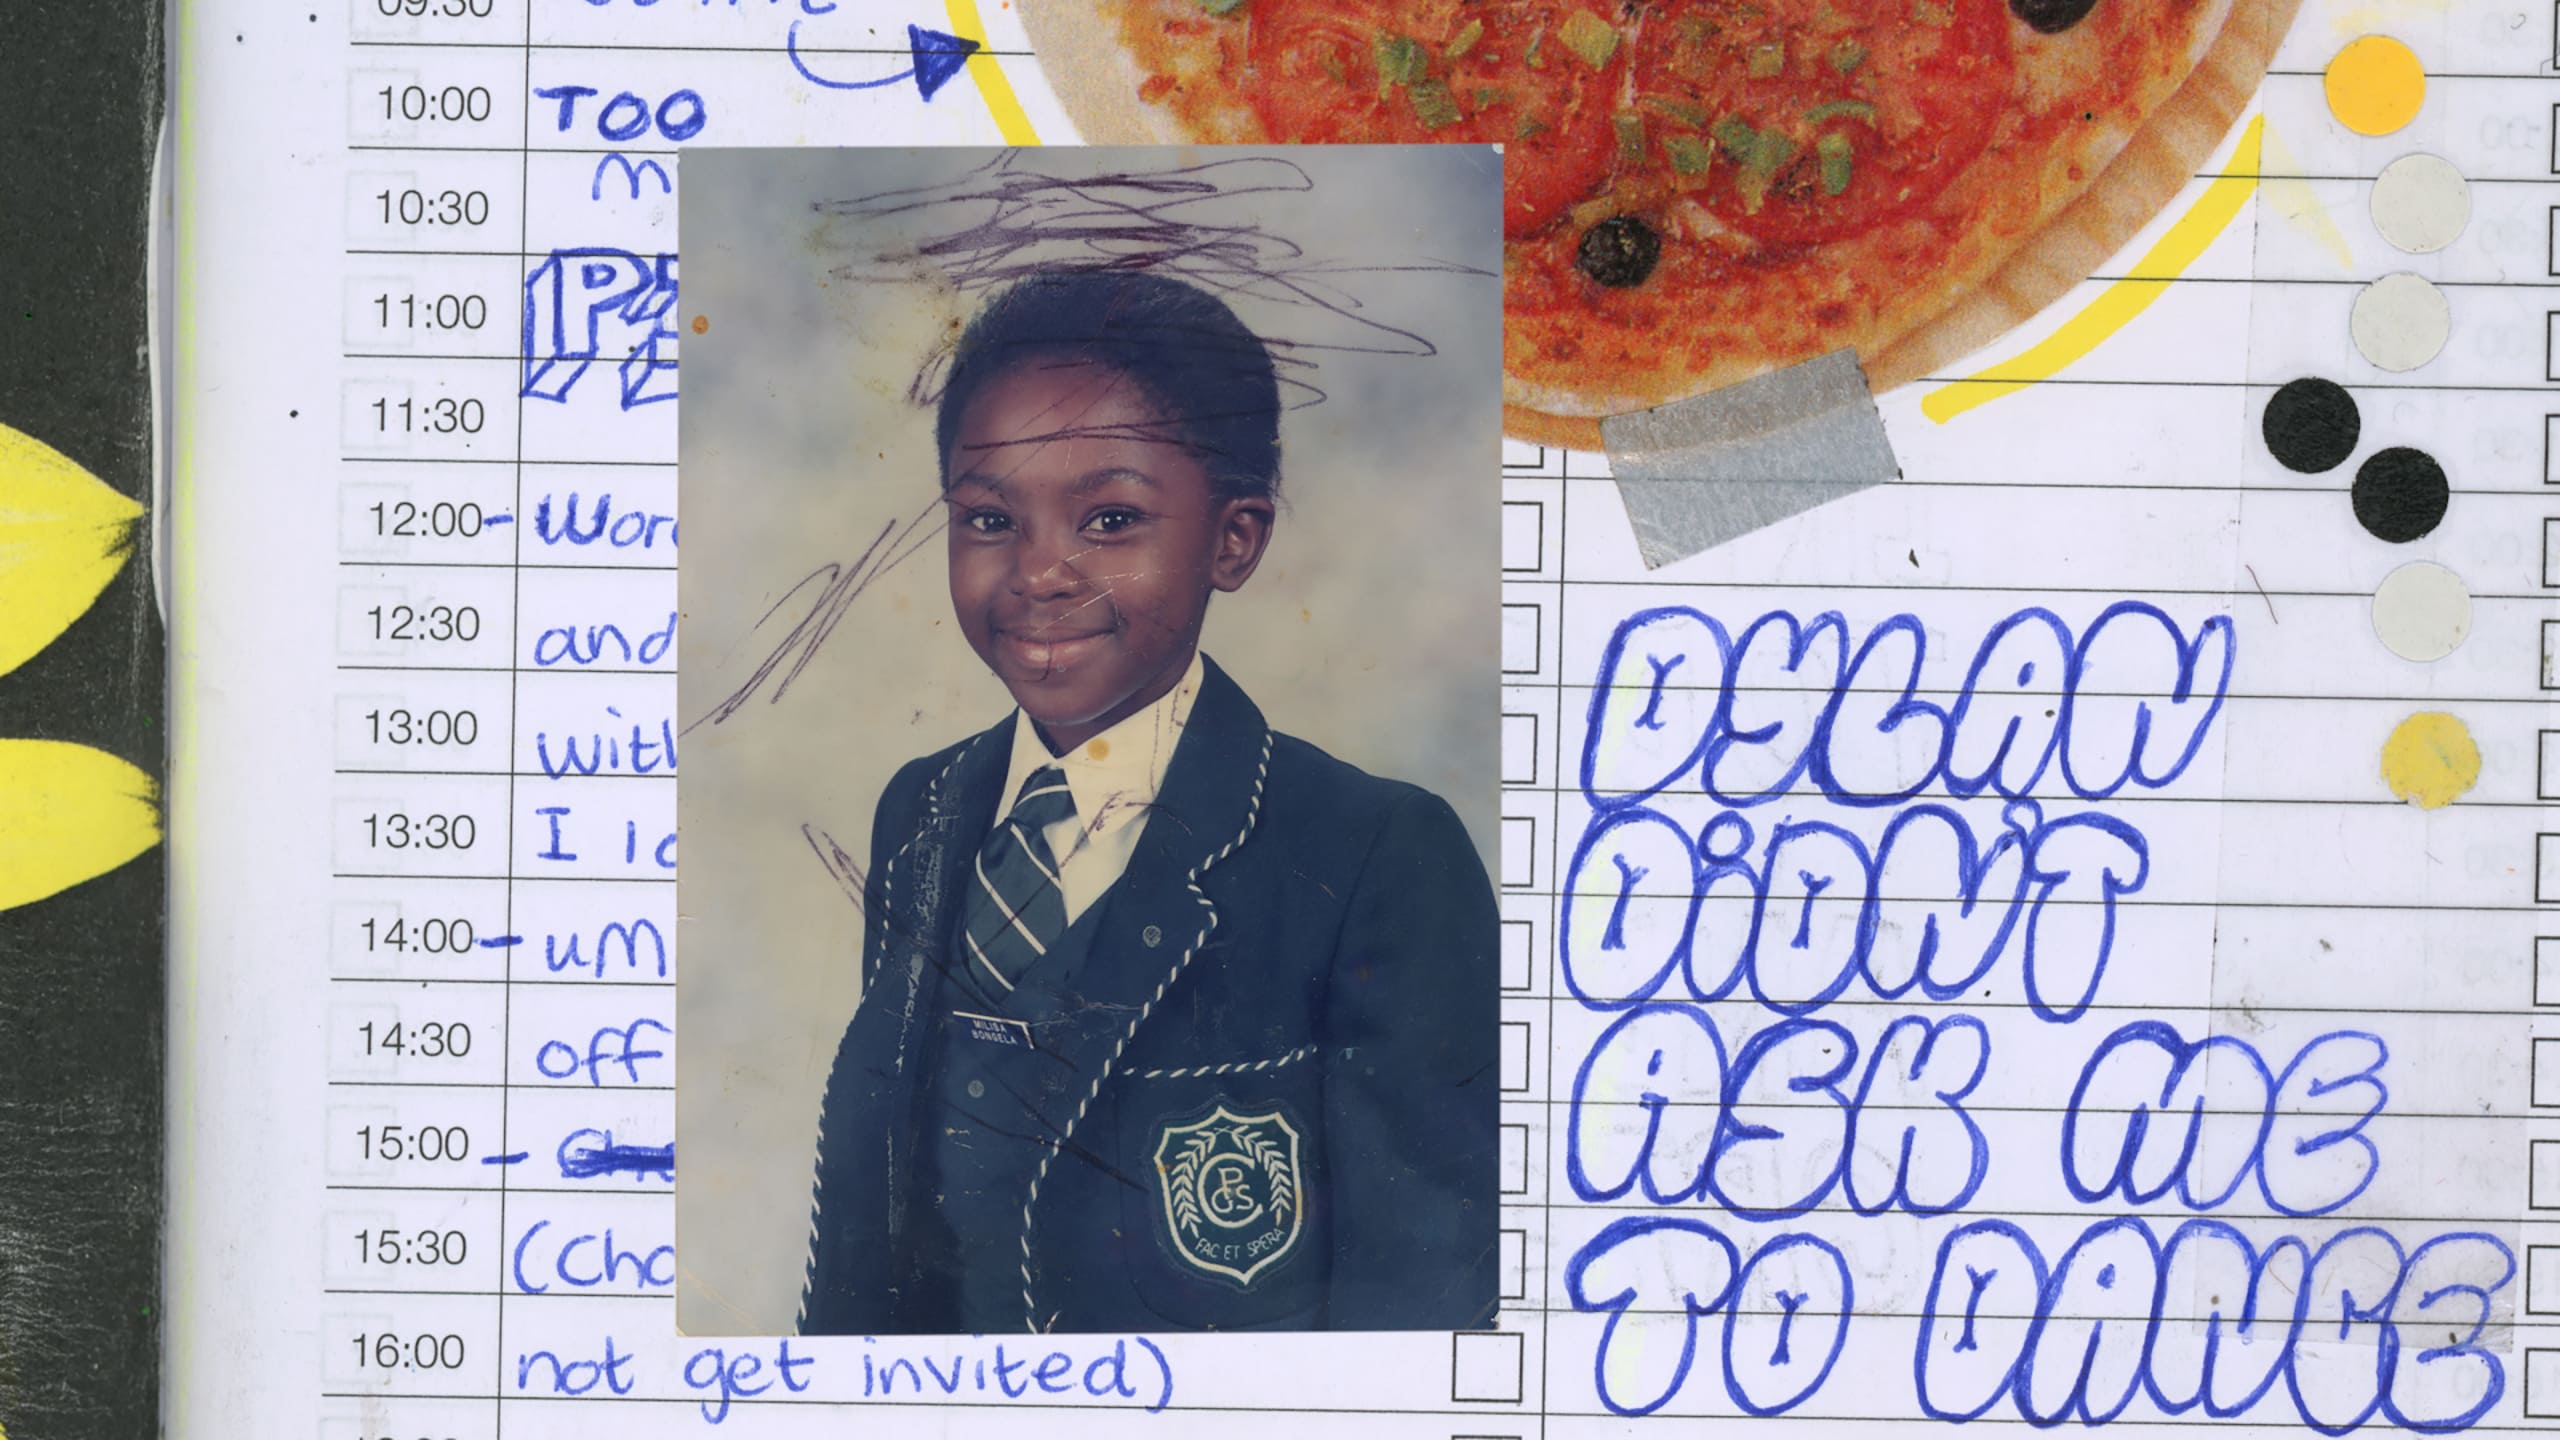 09:30
10:00 TOO
10:30
11:00
11:30
12:00-
12:30 and
13:00
13:30 I
14:00- um
14:30 off
15:00-
15:30
16:00 not get invited)
MILISA
BONGELA
PCGS
FAC ET SPERA
DYLAN
DIDN'T
ASK ME
TO DANCE